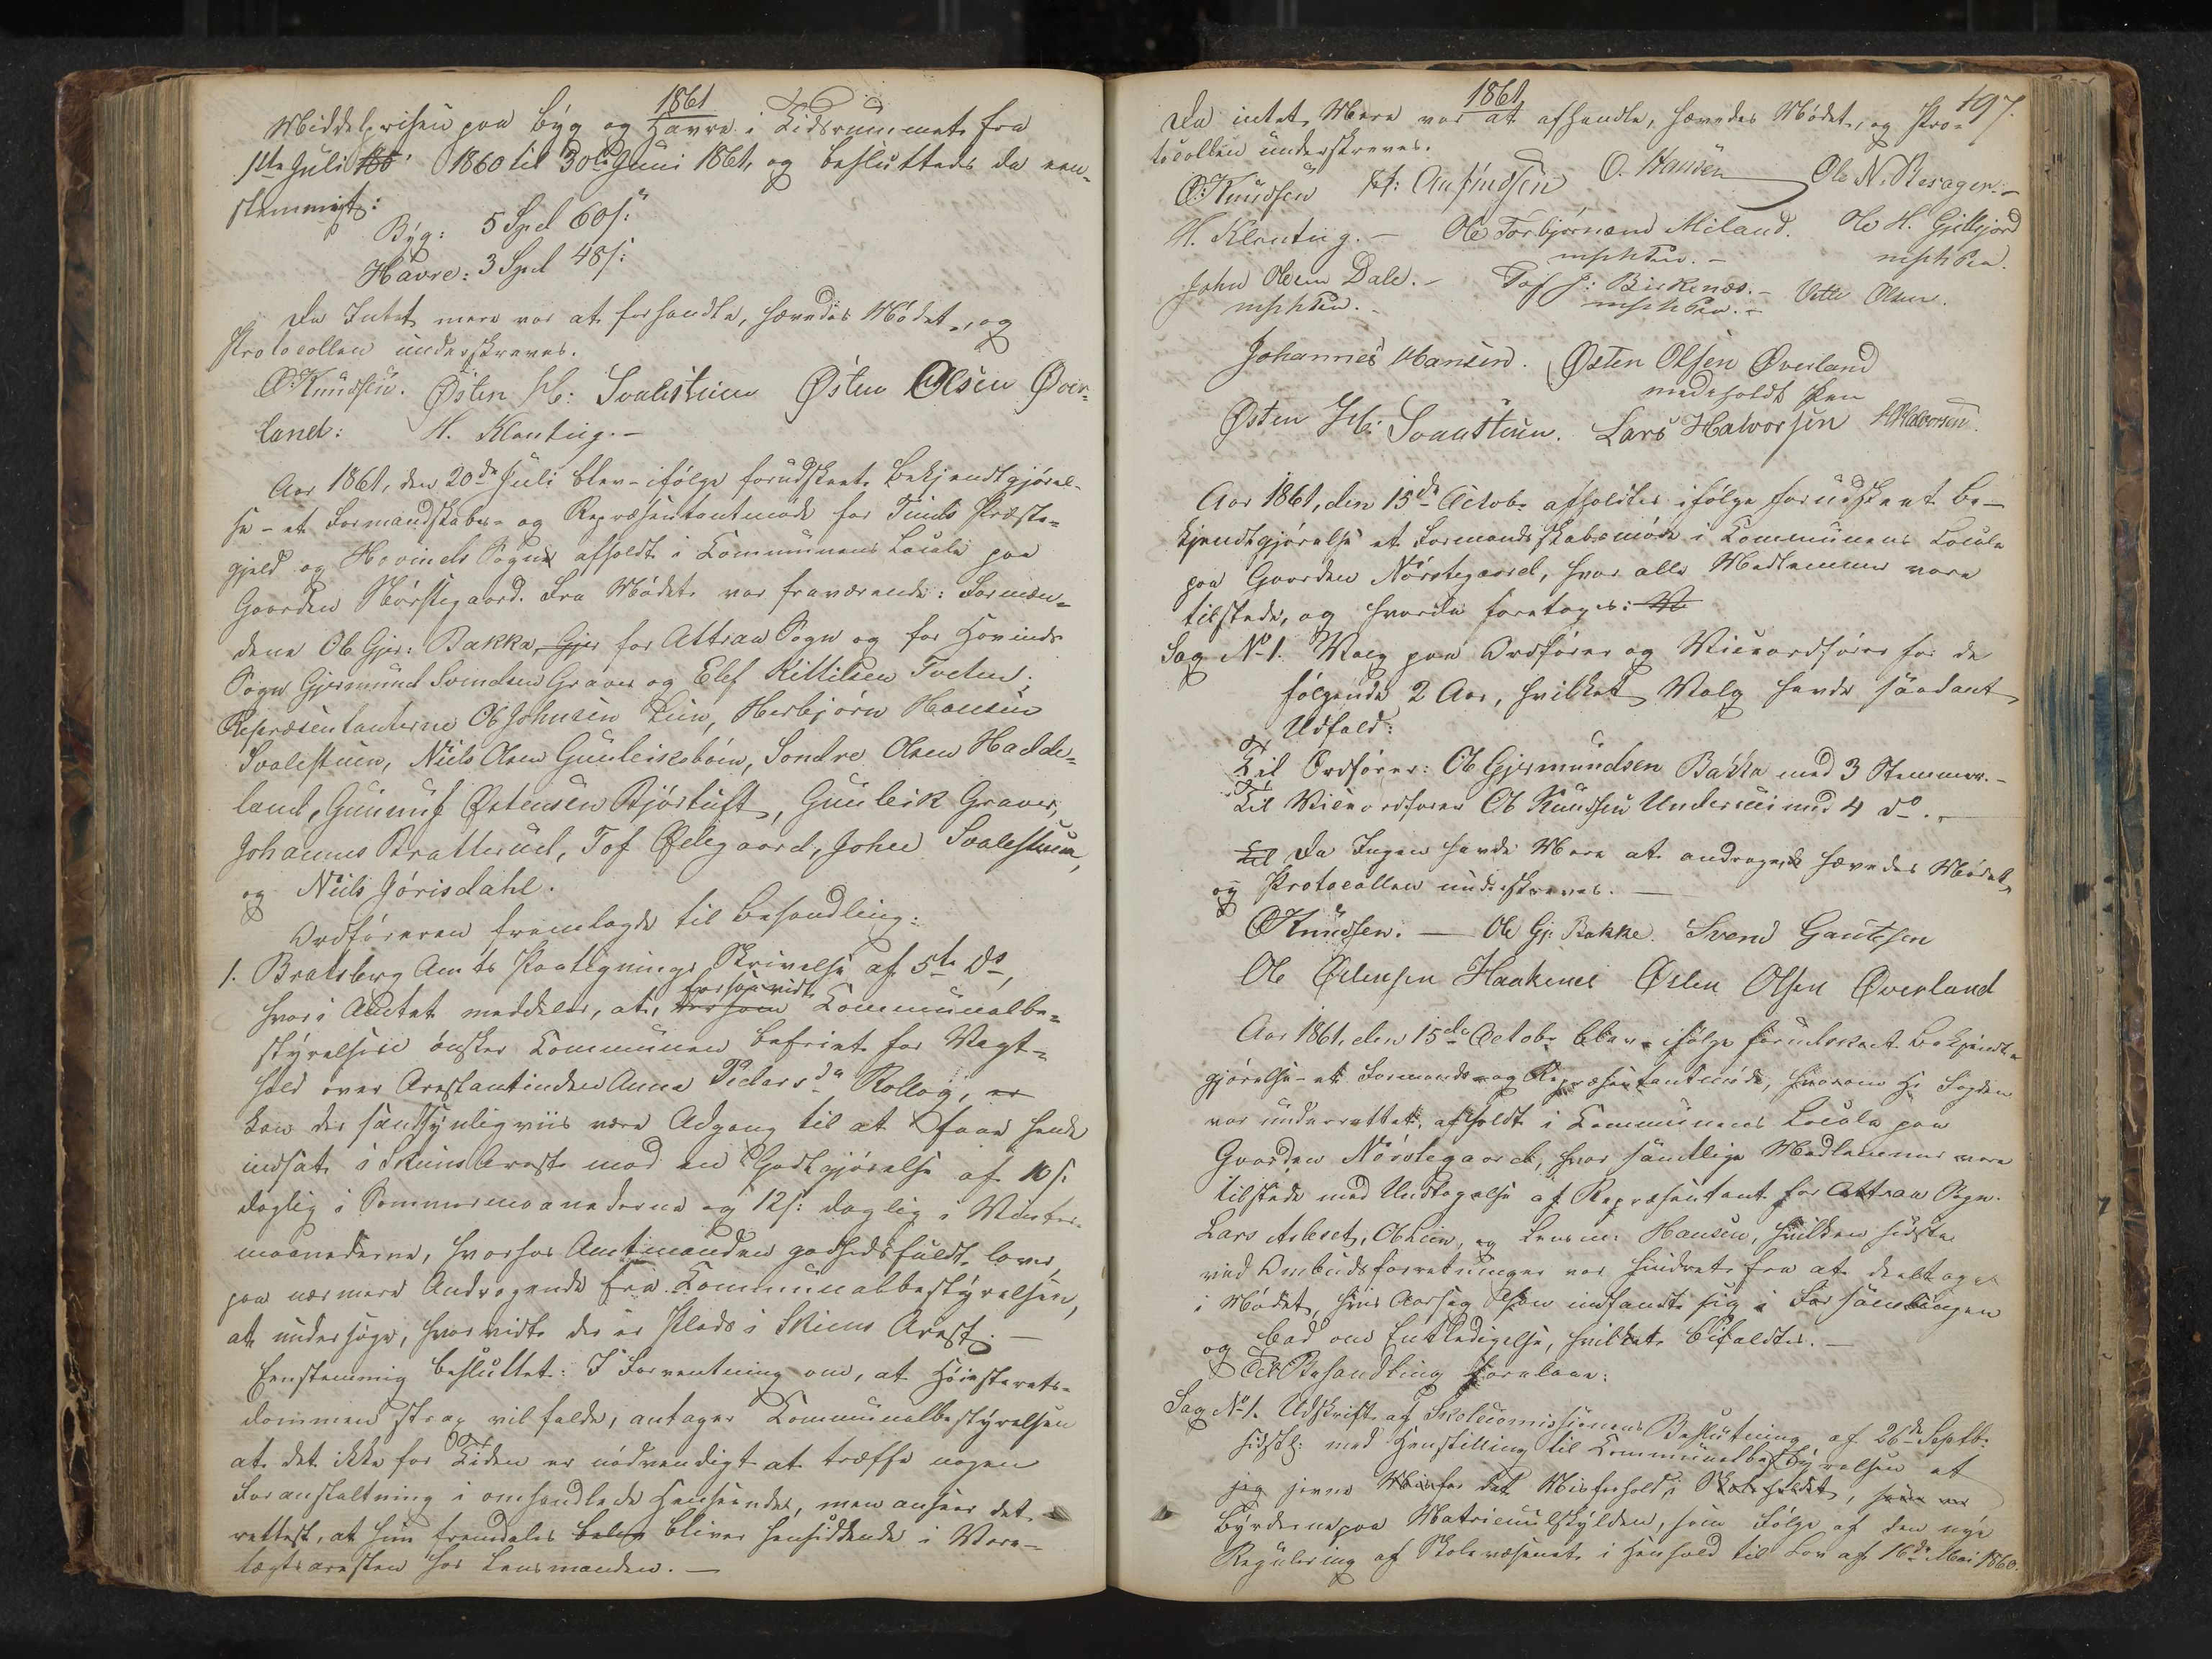 1861
Middelprisen paa Byg og Havre i Tidsrummet fra
1ste Juli 1860 til 30te Juni 1861, og besluttedes da een-
stemmigt:
Byg: 5 Spd 60 s:
Havre: 3 Spd 48 s:
Da Intet mere var at forhandle, hævedes Mødet, og
Protocollen underskreves.
O. Knudsen. Østen H: Svalestuen Østen Olsen Øver-
land: H. Klonting.-
Aar 1861, den 20de Juli blev - ifølge forudskeet Bekjendtgjørel-
se - et Formandskabs- og Repræsentantmøde for Tinds Præste-
gjeld og Hovinds Sogn afholdt i Communens Locale paa
Gaarden Nørstegaard. Fra Mødet var fraværende: Formæn-
dene Ole Gjer: Bakka, Gjer for Attraa Sogn og for Hovinds
Sogn Gjermund Svendsen Graver og Elef Kittilsen Tveten;
Repræsentanterne Ole Johnsen Lien, Herbjørn Hansen
Svalestuen, Niels Olsen Gunleiksbøen, Sondre Olsen Hadde-
land, Gunnuf Østensen Bjørtuft, Gunleik Graver,
Johannes Bratterud, Tof Ødegaard, John Svalestuen,
og Niels Jørisdahl.
Ordføreren fremlagde til Behandling:
1. Bratsberg Amts Paategnings Skrivelse af 5te ds,
forsaavidt
hvori Amtet meddeler, at, dersom Communalbe-
styrelsen ønsker Communen befriet for Vagt-
hold over Arrestantinden Anna Pedersda Rollag, er
kan der sandsynligviis være Adgang til at faae hende
indsat i Skiens Arrest mod en Godtgjørelse af 10 s.
daglig i Sommermaanederne og 12 s: daglig i Vinter-
maanederne, hvorhos Amtmanden godhedsfuldt lover,
paa nærmere Andragende fra Communalbestyrelsen,
at undersøge, hvorvidt der er Plads i Skiens Arrest.-
Eenstemmig besluttet: I Forventning om, at Høiesterets-
dommen strax vil falde, antager Communalbestyrelsen
at det ikke for Tiden er nødvendigt at træffe nogen
Foranstaltning i omhandlede Henseende, men anseer det
rettest, at hun fremdeles bliver hensiddende i Vare-
tægtsarresten hos Lensmanden.-
1861
197.
Da intet Mere var at afhandle, hævedes Mødet, og Pro-
tocollen underskreves.
O. Knudsen O. Hansen Ole N. Besager.-
H. Klonting.- Ole Torbjørnsen Miland. Ole H. Gjellesjord
mphPen.- mphPen.
John Olsen Dale.- Tof J: Birkenæs.- Vetle Olsen.
mphPen.- mphPen.-
Johannes Hansen. Østen Olsen Øverland
medeholdt Pen
Østen H: Svalestuen. Lars Halvorsen H Halvorsen.
Aar 1861, den 15de Octobr afholdtes ifølge forudskeet Be-
kjendtgjørelse et Formandsskabsmøde i Communens Locale
paa Gaarden Nørstegaard, hvor alle Medlemmer vare
tilstede, og hvorda foretoges:
Sag No 1. Valg paa Ordfører og Viceordfører for de
følgende 2 Aar, hvilket Valg havde saadant
Udfald:
Til Ordfører: Ole Gjermundsen Bakka med 3 Stemmer.-
Til Viceordfører Ole Knudsen Undereie med 4 do.-
Da Ingen havde Mere at andrage, hævedes Mødet,
og Protocollen underskreves.-
O Knudsen.- Ole Gj: Bakke. Svend Gautesen
Ole Østensen Haakenes Østen Olsen Øverland
Aar 1861, den 15de Octobr blev - ifølge forudskeet Bekjendt-
gjørelse - et Formands- og Repræsentantmøde, hvorom Hr Fogden
var underrettet, afholdt i Communens Locale paa
Gaarden Nørstegaard, hvor samtlige Medlemmer vare
tilstede med Undtagelse af Repræsentant for Attraa Sogn
Lars Asleset, Ole Lien, og Lensm: Hansen, hvilken sidste
ved Ombudsforretninger var hindret fra at deeltage
i Mødet, hvis Aarsag han indfandt sig i Forsamlingen
og bad om Entledigelse, hvilket bifaldtes.-
Til Behandling forelaae:
Sag No 1. Udskrift af Skolecomissionens Beslutning af 26de Septbr
sidstl: med Henstilling til Communalbestyrelsen at
jevne det Misforhold i Skoleholdet,
Byrderne paa Matriculskylden, som Følge af den nye
Regulering af Skolevæsenet i Henhold til Lov af 16de Mai 1860.